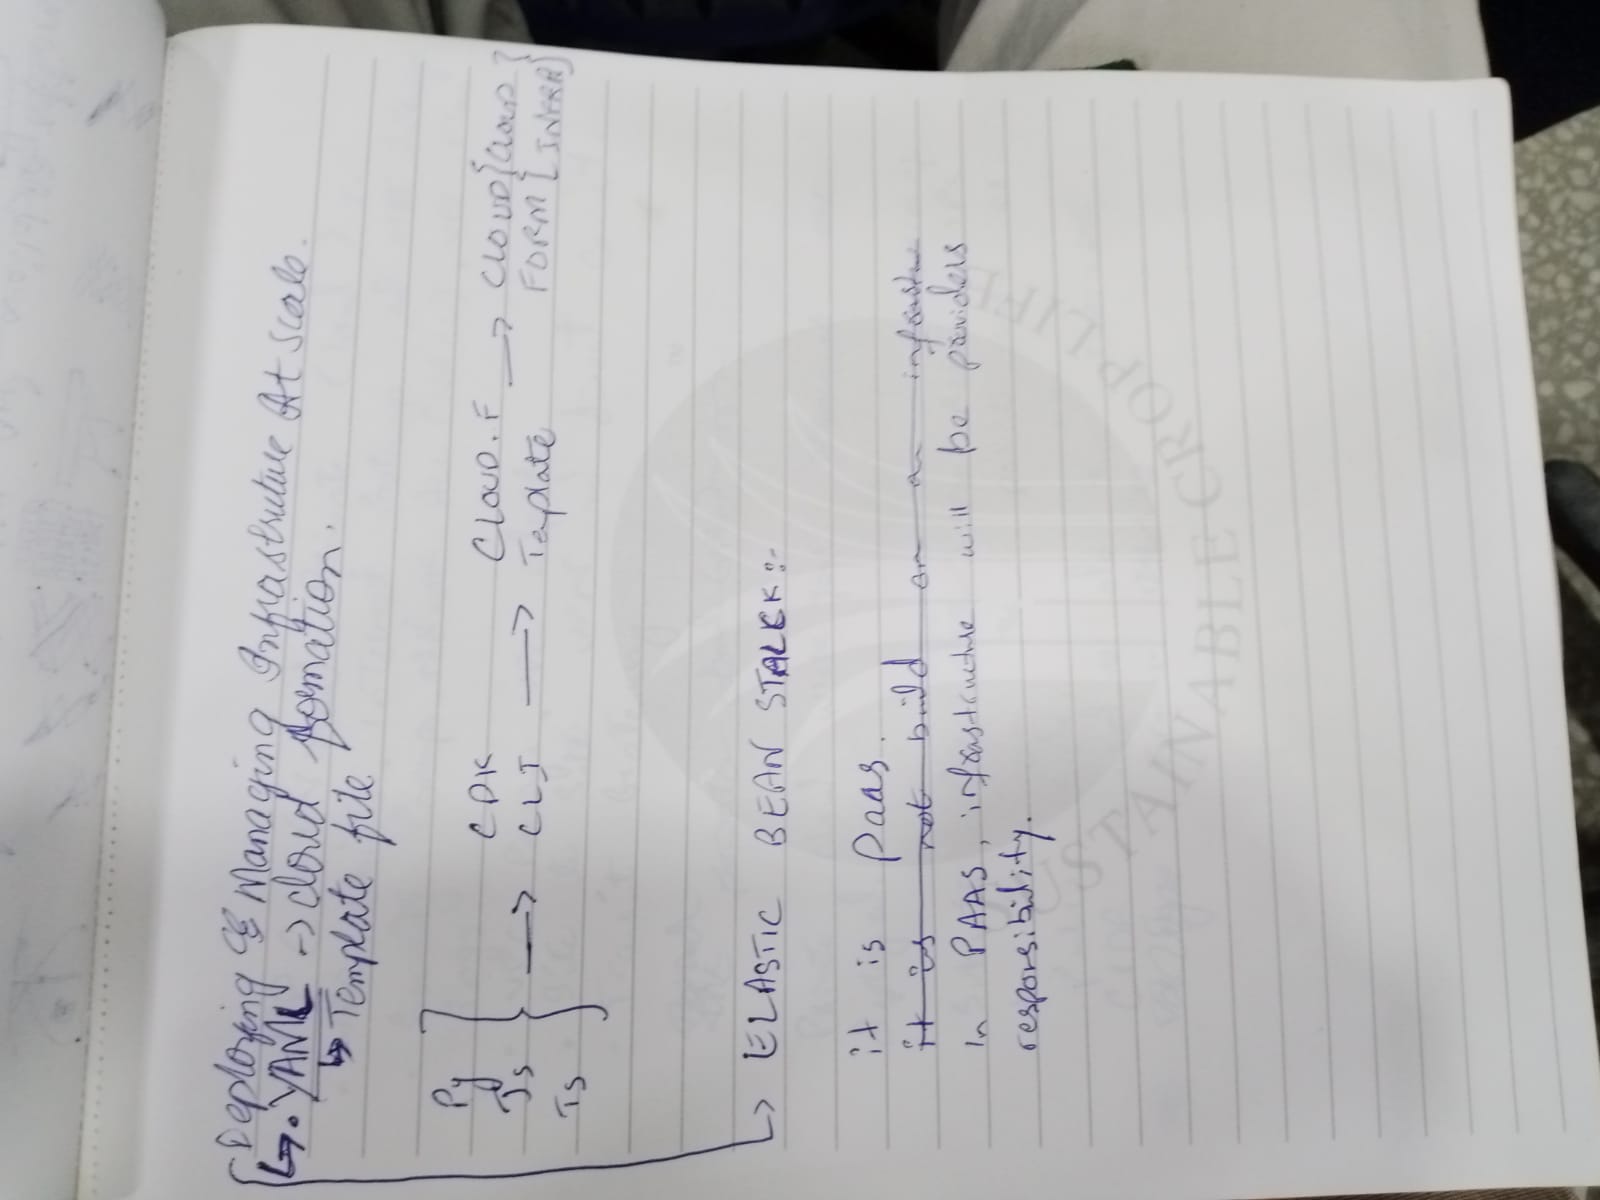 Deploying & Managing Infrastruture At scale.
↳ . YAML → cloud formation.
↳ Template file
Py
Js } → CDK CLI → CLOUD.F Template → CLOUD FORM { CLOUD INFRA }
Ts
↳ ELASTIC BEAN STALCK:-
it is Paas.
it is not build on an infrastu
In PAAS, infrastructure will be providers
responsibility.
SUSTAINABLE CROP LIFE